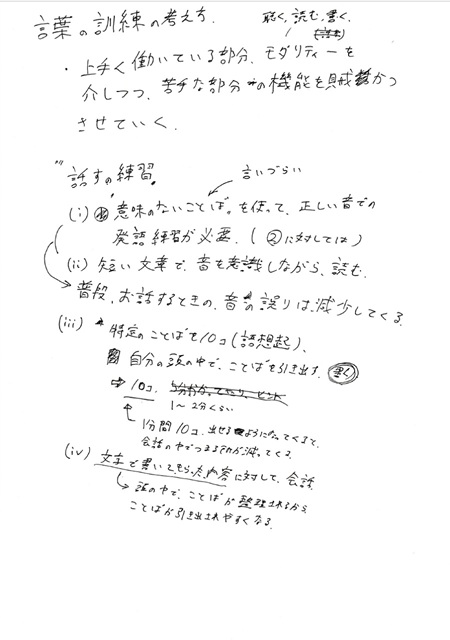 言葉の訓練の考え方.
聴く, 読む, 書く,
・上手く働いている部分, モダリティーを
介しつつ, 苦手な部分の機能を賦活
させていく.
"話す"の練習.
言いづらい
(i) 意味のないことば。を使って, 正しい音での
発語練習が必要. (②に対しては)
(ii) 短い文章で, 音を意識しながら, 読む.
普段, お話するときの, 音の誤りは, 減少してくる.
(iii) 特定のことばを10コ (語想起),
自分の頭の中で, ことばを引き出す. 書く
⇒ 10コ.
1〜2分くらい
1分間 10コ, 出せるようになってくると,
会話の中でつまるのが減ってくる.
(iv) 文字で書いてもらった内容に対して, 会話.
頭の中で, ことばが整理されるから,
ことばが引き出されやすくなる.